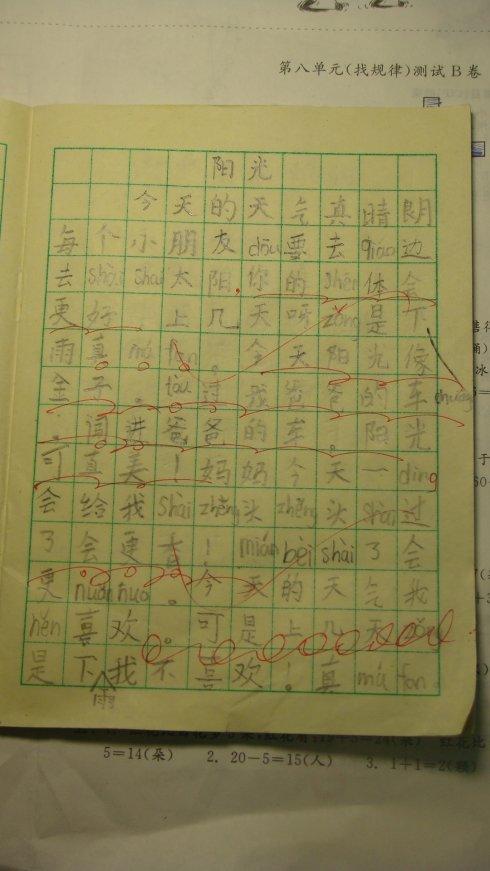 第八单元(找规律)测试B卷
阳光
今天的天气真晴朗
每个小朋友dōu要去 边
去shài shai太阳.你的shēn体会
更好,上几天呀zǒng是下
雨真má fan。今天阳光像
金子。tòu过我爸爸的车chuāng
闯进爸爸的车。阳光
可真美!妈妈今天一dìng
会给我shài zhěng头zhěng头shài过
了会更香!mián bèi shài了会
更nuǎn huo。今天的天气我
hěn喜欢。可是上几天
是下雨我不喜欢!真má fan。
5=14(朵) 2. 20-5=15(人) 3. 1+1=2(